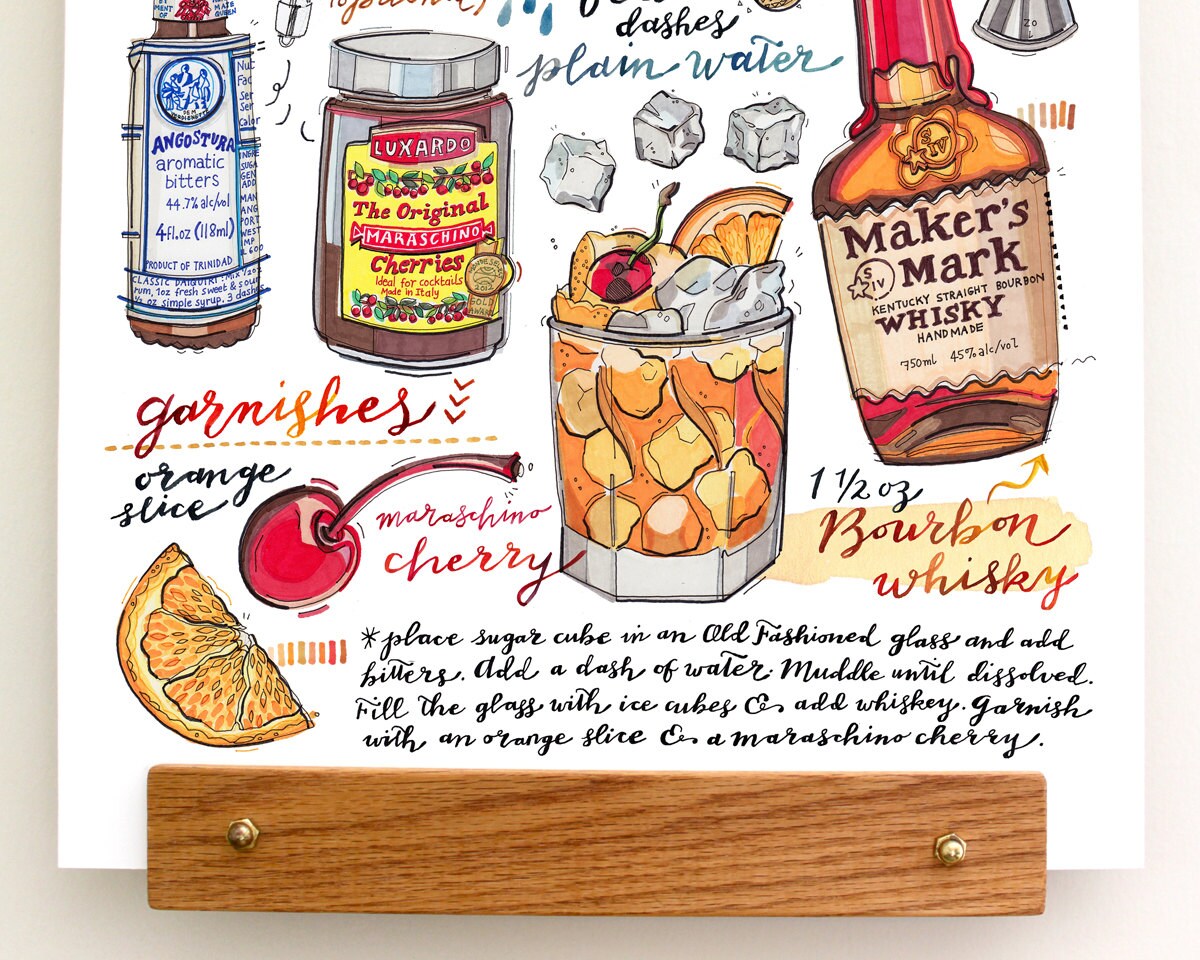 dashes
plain water
MENT OF
MAJESTY
QUEEN
ANGOSTURA
aromatic
bitters
44.7% alc/vol
4 fl. oz (118 ml)
PRODUCT OF TRINIDAD
CLASSIC DAIQUIRI: Mix 1/2 oz
rum, 1oz fresh sweet & sour
1/2 oz simple syrup, 3 dashes
LUXARDO
The Original
MARASCHINO
Cherries
Ideal for cocktails
Made in Italy
2012
GOLD
AWARD
S
IV
Maker's
S
IV
Mark
KENTUCKY STRAIGHT BOURBON
WHISKY
HANDMADE
750ml 45% alc/vol
garnishes
orange
slice
maraschino
cherry
1 1/2 oz
Bourbon
whisky
*place sugar cube in an Old Fashioned glass and add
bitters. Add a dash of water. Muddle until dissolved.
Fill the glass with ice cubes & add whiskey. Garnish
with an orange slice & a maraschino cherry.